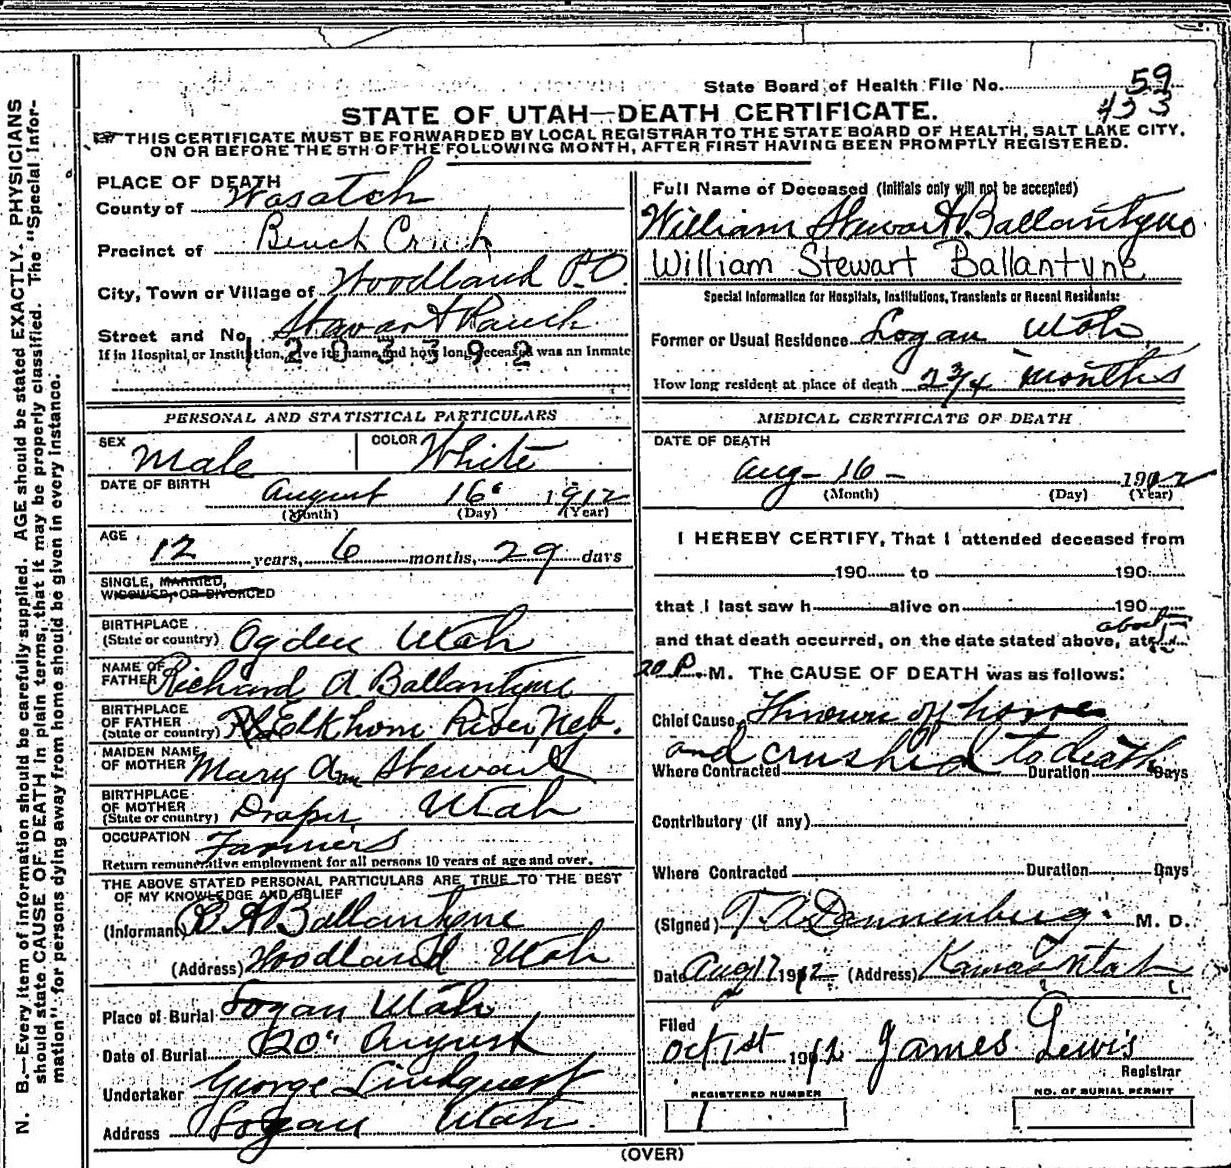 State Board of Health File No. 59
433
STATE OF UTAH—DEATH CERTIFICATE.
☞ THIS CERTIFICATE MUST BE FORWARDED BY LOCAL REGISTRAR TO THE STATE BOARD OF HEALTH, SALT LAKE CITY,
ON OR BEFORE THE 5TH OF THE FOLLOWING MONTH, AFTER FIRST HAVING BEEN PROMPTLY REGISTERED.
N. B.—Every item of information should be carefully supplied. AGE should be stated EXACTLY. PHYSICIANS
should state CAUSE OF DEATH in plain terms, that it may be properly classified. The "Special Infor-
mation" for persons dying away from home should be given in every instance.
PLACE OF DEATH
County of Wasatch
Precinct of Bench Creek
City, Town or Village of Woodland P.O.
Street and No. Stewart Ranch
If in Hospital, or Institution, give its name and how long deceased was an Inmate
1203392
PERSONAL AND STATISTICAL PARTICULARS
SEX Male COLOR White
DATE OF BIRTH August 16 1912
(Month) (Day) (Year)
AGE 12 years, 6 months, 29 days
SINGLE, MARRIED,
WIDOWED, OR DIVORCED
BIRTHPLACE
(State or country) Ogden Utah
NAME OF
FATHER Richard A Ballantyne
BIRTHPLACE
OF FATHER
(State or country) Elkhorn River Neb.
MAIDEN NAME
OF MOTHER Mary Ann Stewart
BIRTHPLACE
OF MOTHER
(State or country) Draper Utah
OCCUPATION Farmers
Return remunerative employment for all persons 10 years of age and over.
THE ABOVE STATED PERSONAL PARTICULARS ARE TRUE TO THE BEST
OF MY KNOWLEDGE AND BELIEF
(Informant) R A Ballantyne
(Address) Woodland Utah
Place of Burial Logan Utah
Date of Burial 20" August
Undertaker George Lindquest
Address Logan Utah
Full Name of Deceased (Initials only will not be accepted)
William Stewart Ballantyne
William Stewart Ballantyne
Special Information for Hospitals, Institutions, Transients or Recent Residents:
Former or Usual Residence Logan Utah
How long resident at place of death 2 3/4 months
MEDICAL CERTIFICATE OF DEATH
DATE OF DEATH
Aug - 16 - 1912
(Month) (Day) (Year)
I HEREBY CERTIFY, That I attended deceased from
190 to 190
that I last saw h alive on 190
about
and that death occurred, on the date stated above, at
20 P. M. The CAUSE OF DEATH was as follows:
Chief Cause Thrown off horse
and crushed to death
Where Contracted Duration Days
Contributory (if any)
Where Contracted Duration Days
(Signed) T. A. Dannenberg M. D.
Date Aug 17 1912 (Address) Kamas Utah
Filed
Oct 1st 1912 James Lewis
Registrar
REGISTERED NUMBER
1
NO. OF BURIAL PERMIT
(OVER)